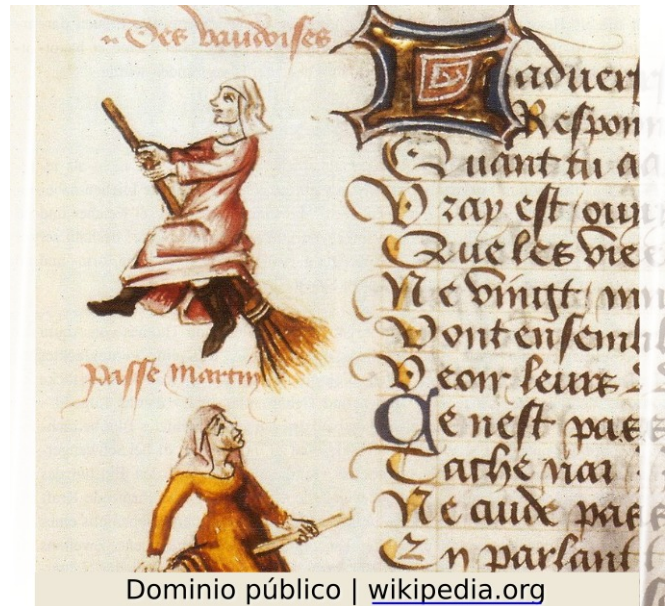 Des vaudoises
passe martin
Laduers
Respon
Quant tu
Vray est ouy
Que les vie
Ne vingt
Vont ensemb
Veoir leurs
Ce nest pas
Tache nai
Ne cuide pas
En parlant
Dominio público | wikipedia.org